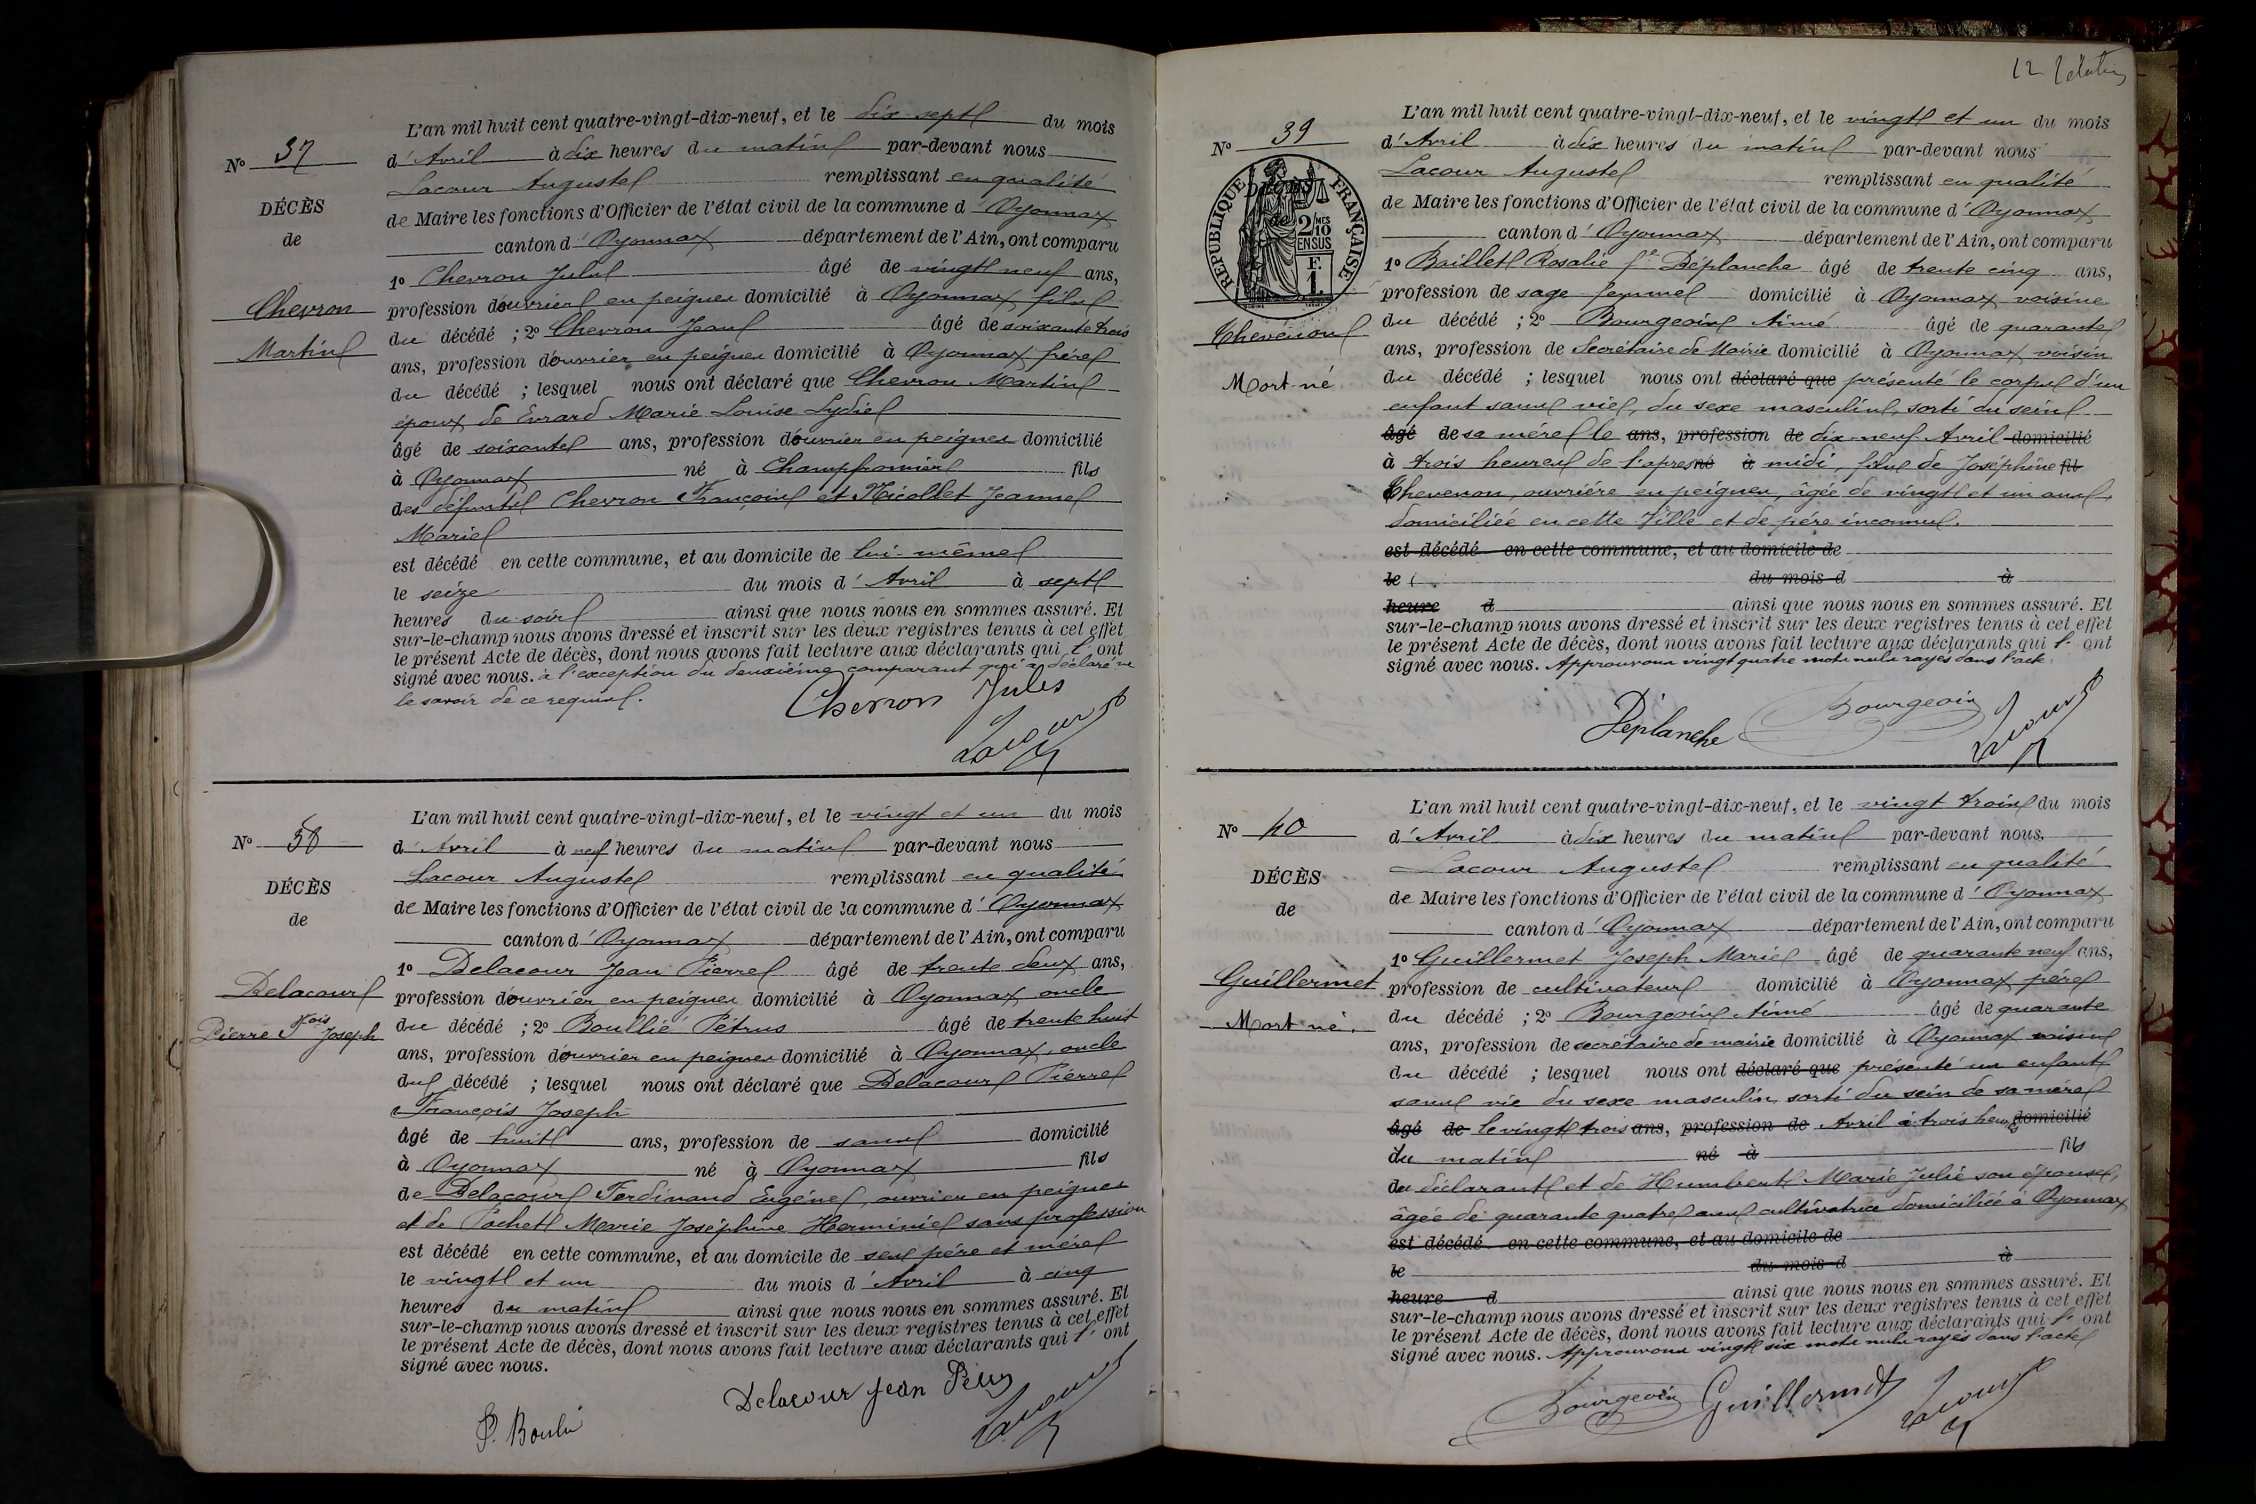 L'an mil huit cent quatre-vingt-dix-neuf, et le dix sept du mois
N° 37
d'Avril à dix heures du matin par-devant nous
Lacour Auguste remplissant en qualité
DÉCÈS
de Maire les fonctions d'Officier de l'état civil de la commune d'Oyonnax
de
canton d'Oyonnax département de l'Ain, ont comparu
1° Chevron Jules âgé de vingt neuf ans,
Chevron
profession d'ouvrier en peignes domicilié à Oyonnax fils
du décédé ; 2° Chevron Jean âgé de soixante trois
Martin
ans, profession d'ouvrier en peignes domicilié à Oyonnax frère
du décédé ; lesquel nous ont déclaré que Chevron Martin
époux de Evrard Marie Louise Lydie
âgé de soixante ans, profession d'ouvrier en peignes domicilié
à Oyonnax né à Champfromier fils
des défunts Chevron François et Nicollet Jeanne
Marie
est décédé en cette commune, et au domicile de lui-même
le seize du mois d'Avril à sept
heures du soir ainsi que nous nous en sommes assuré. Et
sur-le-champ nous avons dressé et inscrit sur les deux registres tenus à cet effet
le présent Acte de décès, dont nous avons fait lecture aux déclarants qui l'ont
signé avec nous. à l'exception du deuxième comparant qui a déclaré ne
le savoir de ce requis.
Chevron Jules
Lacour
L'an mil huit cent quatre-vingt-dix-neuf, et le vingt et un du mois
N° 38
d'Avril à neuf heures du matin par-devant nous
Lacour Auguste remplissant en qualité
DÉCÈS
de Maire les fonctions d'Officier de l'état civil de la commune d'Oyonnax
de
canton d'Oyonnax département de l'Ain, ont comparu
1° Delacour Jean Pierre âgé de trente deux ans,
Delacour
profession d'ouvrier en peignes domicilié à Oyonnax oncle
du décédé ; 2° Boullié Pétrus âgé de trente huit
Pierre Fois Joseph
ans, profession d'ouvrier en peignes domicilié à Oyonnax, oncle
du décédé ; lesquel nous ont déclaré que Delacour Pierre
François Joseph
âgé de huit ans, profession de sans domicilié
à Oyonnax né à Oyonnax fils
de Delacour Ferdinand Eugène, ouvrier en peignes
et de Pochet Marie Joséphine Herminie sans profession
est décédé en cette commune, et au domicile de ses père et mère
le vingt et un du mois d'Avril à cinq
heures du matin ainsi que nous nous en sommes assuré. Et
sur-le-champ nous avons dressé et inscrit sur les deux registres tenus à cet effet
le présent Acte de décès, dont nous avons fait lecture aux déclarants qui l'ont
signé avec nous.
Delacour Jean
P. Boulié
Lacour
12
L'an mil huit cent quatre-vingt-dix-neuf, et le vingt et un du mois
N° 39
d'Avril à dix heures du matin par-devant nous
Lacour Auguste remplissant en qualité
RÉPUBLIQUE FRANÇAISE
2 MES
10
EN SUS
F.
1.
de Maire les fonctions d'Officier de l'état civil de la commune d'Oyonnax
canton d'Oyonnax département de l'Ain, ont comparu
1° Baillet Rosalie fe Déplanche âgé de trente cinq ans,
profession de sage femme domicilié à Oyonnax voisine
Chevenon
du décédé ; 2° Bourgeois Aimé âgé de quarante
ans, profession de Secrétaire de Mairie domicilié à Oyonnax voisin
Mort-né
du décédé ; lesquel nous ont déclaré que présenté le corps d'un
enfant sans vie, du sexe masculin, sorti du sein
âgé de sa mère le ans, profession de dix-neuf Avril domicilié
à trois heures de l'après né à midi, fils de Joséphine fil
Chevenon, ouvrière en peignes, âgée de vingt et un ans,
domiciliée en cette Ville et de père inconnu.
est décédé en cette commune, et au domicile de
le du mois d à
heure d ainsi que nous nous en sommes assuré. Et
sur-le-champ nous avons dressé et inscrit sur les deux registres tenus à cet effet
le présent Acte de décès, dont nous avons fait lecture aux déclarants qui l'ont
signé avec nous. Approuvons vingt quatre mots nuls rayés dans l'acte.
Déplanche Bourgeois Lacour
L'an mil huit cent quatre-vingt-dix-neuf, et le vingt trois du mois
N° 40
d'Avril à dix heures du matin par-devant nous.
Lacour Auguste remplissant en qualité
DÉCÈS
de Maire les fonctions d'Officier de l'état civil de la commune d'Oyonnax
de
canton d'Oyonnax département de l'Ain, ont comparu
1° Guillermet Joseph Marie âgé de quarante neuf ans,
Guillermet
profession de cultivateur domicilié à Oyonnax père
du décédé ; 2° Bourgeois Aimé âgé de quarante
Mort né.
ans, profession de secrétaire de mairie domicilié à Oyonnax voisin
du décédé ; lesquel nous ont déclaré que présenté un enfant
sans vie du sexe masculin, sorti du sein de sa mère
âgé de le vingt trois ans, profession de Avril à trois heures domicilié
du matin né à fils
du déclarant et de Humbert Marie Julie son épouse,
âgée de quarante quatre ans cultivatrice domiciliée à Oyonnax
est décédé en cette commune, et au domicile de
le du mois d à
heure d ainsi que nous nous en sommes assuré. Et
sur-le-champ nous avons dressé et inscrit sur les deux registres tenus à cet effet
le présent Acte de décès, dont nous avons fait lecture aux déclarants qui l'ont
signé avec nous. Approuvons vingt six mots nuls rayés dans l'acte
Bourgeois Guillermet Lacour